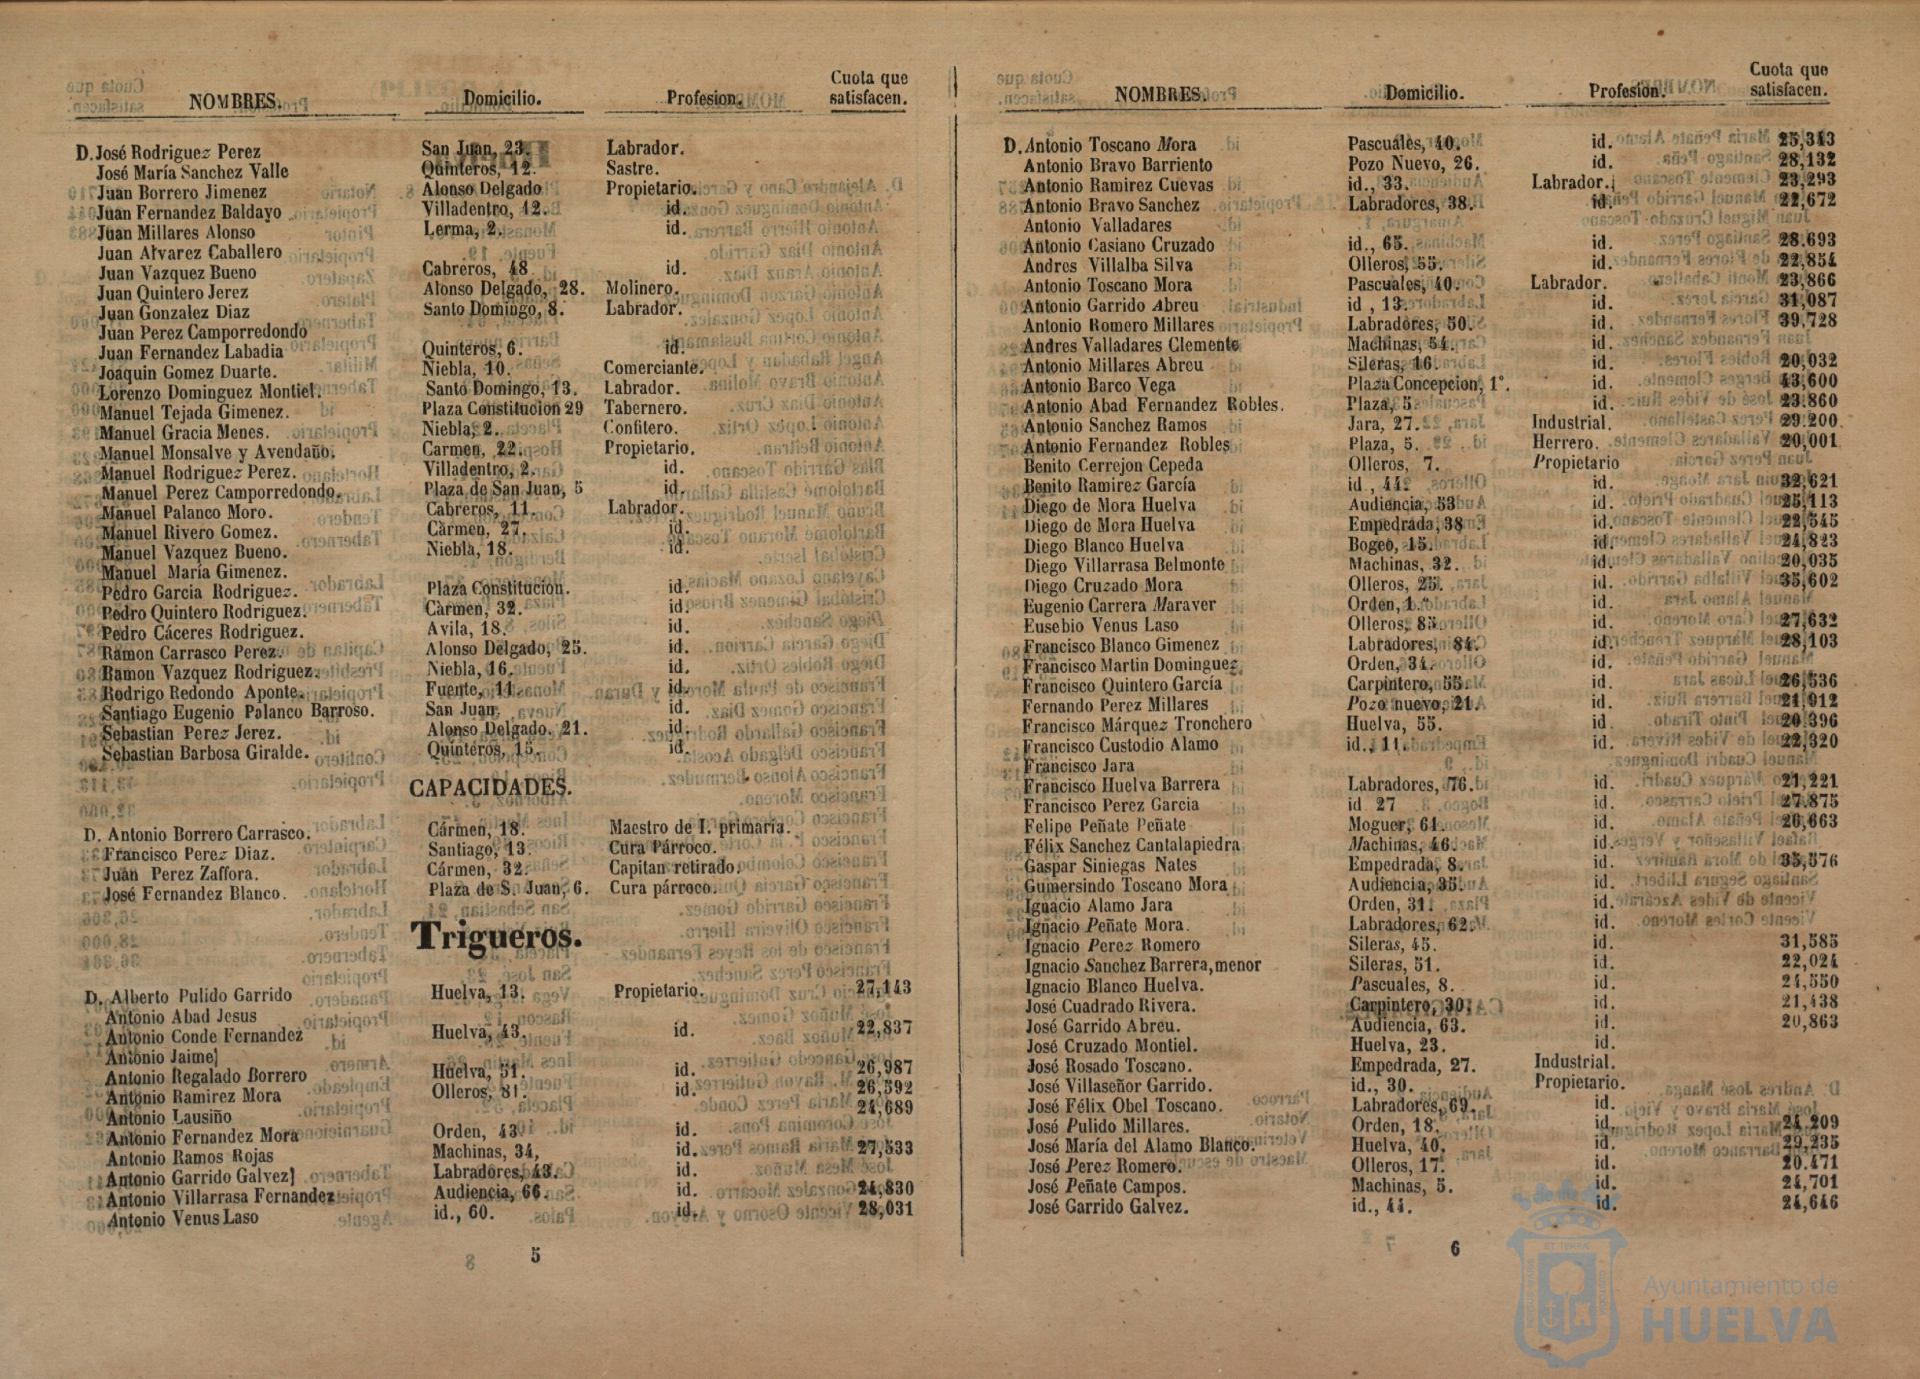 NOMBRES. Domicilio. Profesion. Cuota que satisfacen.
D. José Rodriguez Perez San Juan, 23. Labrador.
José María Sanchez Valle Quinteros, 12. Sastre.
Juan Borrero Jimenez Alonso Delgado Propietario.
Juan Fernandez Baldayo Villadentro, 12. id.
Juan Millares Alonso Lerma, 2. id.
Juan Alvarez Caballero
Juan Vazquez Bueno Cabreros, 48 id.
Juan Quintero Jerez Alonso Delgado, 28. Molinero.
Juan Gonzalez Diaz Santo Domingo, 8. Labrador.
Juan Perez Camporredondo
Juan Fernandez Labadia Quinteros, 6. id.
Joaquin Gomez Duarte. Niebla, 10. Comerciante.
Lorenzo Dominguez Montiel. Santo Domingo, 13. Labrador.
Manuel Tejada Gimenez. Plaza Constitucion 29 Tabernero.
Manuel Gracia Menes. Niebla, 2. Confitero.
Manuel Monsalve y Avendaño. Carmen, 22. Propietario.
Manuel Rodriguez Perez. Villadentro, 2. id.
Manuel Perez Camporredondo. Plaza de San Juan, 5 id.
Manuel Palanco Moro. Cabreros, 11. Labrador.
Manuel Rivero Gomez. Cármen, 27. id.
Manuel Vazquez Bueno. Niebla, 18. id.
Manuel María Gimenez.
Pedro Garcia Rodriguez. Plaza Constitucion. id.
Pedro Quintero Rodriguez. Cármen, 32. id.
Pedro Cáceres Rodriguez. Avila, 18. id.
Ramon Carrasco Perez. Alonso Delgado, 25. id.
Ramon Vazquez Rodriguez. Niebla, 16. id.
Rodrigo Redondo Aponte. Fuente, 11 id.
Santiago Eugenio Palanco Barroso. San Juan. id.
Sebastian Perez Jerez. Alonso Delgado. 21. id.
Sebastian Barbosa Giralde. Quinteros, 15. id.
CAPACIDADES.
D. Antonio Borrero Carrasco. Cármen, 18. Maestro de I. primaria.
Francisco Perez Diaz. Santiago, 13. Cura Párroco.
Juan Perez Zaffora. Cármen, 32. Capitan retirado.
José Fernandez Blanco. Plaza de S. Juan, 6. Cura párroco.
Trigueros.
D. Alberto Pulido Garrido Huelva, 13. Propietario. 27,143
Antonio Abad Jesus
Antonio Conde Fernandez Huelva, 43. id. 22,837
Antonio Jaime]
Antonio Regalado Borrero Huelva, 51. id. 26,987
Antonio Ramirez Mora Olleros, 81. id. 26,592
Antonio Lausiño 24,689
Antonio Fernandez Mora Orden, 43 id.
Antonio Ramos Rojas Machinas, 34, id. 27,533
Antonio Garrido Galvez] Labradores, 43. id.
Antonio Villarrasa Fernandez Audiencia, 66. id. 24,830
Antonio Venus Laso id., 60. id. 28,031
5
NOMBRES. Domicilio. Profesion. Cuota que satisfacen.
D. Antonio Toscano Mora Pascuales, 40. id. 25,343
Antonio Bravo Barriento Pozo Nuevo, 26. id. 28,132
Antonio Ramirez Cuevas id., 33. Labrador. 23,293
Antonio Bravo Sanchez Labradores, 38. id. 22,672
Antonio Valladares
Antonio Casiano Cruzado id., 65. id. 28.693
Andres Villalba Silva Olleros, 55. id. 22,854
Antonio Toscano Mora Pascuales, 40. Labrador. 23,866
Antonio Garrido Abreu id , 13. id. 31,087
Antonio Romero Millares Labradores, 50. id. 39,728
Andres Valladares Clemente Machinas, 54. id.
Antonio Millares Abreu Sileras, 16. id. 20,032
Antonio Barco Vega Plaza Concepcion, 1°. id. 43,600
Antonio Abad Fernandez Robles. Plaza, 5. id. 23.860
Antonio Sanchez Ramos Jara, 27. Industrial. 29.200
Antonio Fernandez Robles Plaza, 5. Herrero. 20,001
Benito Cerrejon Cepeda Olleros, 7. Propietario
Benito Ramirez García id , 44 id. 32,621
Diego de Mora Huelva Audiencia, 53 id. 25,113
Diego de Mora Huelva Empedrada, 38 id. 22,545
Diego Blanco Huelva Bogeo, 15. id. 24,823
Diego Villarrasa Belmonte Machinas, 32. id. 20,035
Diego Cruzado Mora Olleros, 25. id. 35,602
Eugenio Carrera Maraver Orden, 1. id.
Eusebio Venus Laso Olleros, 85. id. 27,632
Francisco Blanco Gimenez Labradores, 84. id. 28,103
Francisco Martin Dominguez Orden, 34. id.
Francisco Quintero García Carpintero, 55. id. 26,536
Fernando Perez Millares Pozo nuevo, 21. id. 21,912
Francisco Márquez Tronchero Huelva, 55. id. 20,396
Francisco Custodio Alamo id., 11. id. 22,320
Francisco Jara
Francisco Huelva Barrera Labradores, 76. id. 21,221
Francisco Perez Garcia id 27 id. 27,875
Felipe Peñate Peñate Moguer, 61. id. 26,663
Félix Sanchez Cantalapiedra Machinas, 46. id.
Gaspar Siniegas Nates Empedrada, 8. id. 35,576
Gumersindo Toscano Mora Audiencia, 35. id.
Ignacio Alamo Jara Orden, 31. id.
Ignacio Peñate Mora. Labradores, 62. id.
Ignacio Perez Romero Sileras, 45. id. 31,585
Ignacio Sanchez Barrera, menor Sileras, 51. id. 22,024
Ignacio Blanco Huelva. Pascuales, 8. id. 24,550
José Cuadrado Rivera. Carpintero, 30. id. 21,438
José Garrido Abreu. Audiencia, 63. id. 20,863
José Cruzado Montiel. Huelva, 23. id.
José Rosado Toscano. Empedrada, 27. Industrial.
José Villaseñor Garrido. id., 30. Propietario.
José Félix Obel Toscano. Labradores, 69. id.
José Pulido Millares. Orden, 18. id. 24.209
José María del Alamo Blanco. Huelva, 40. id. 29,235
José Perez Romero. Olleros, 17. id. 20.471
José Peñate Campos. Machinas, 5. id. 24,701
José Garrido Galvez. id., 44. id. 24,646
6
Ayuntamiento de
HUELVA